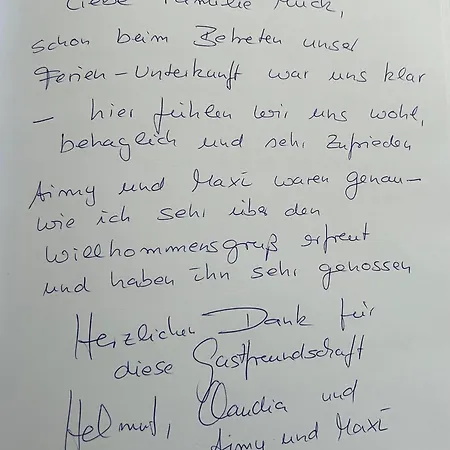 Liebe Familie Muck,
schon beim Betreten unser
Ferien-Unterkunft war uns klar
- hier fühlen wir uns wohl,
behaglich und sehr zufrieden
Aimy und Maxi waren genau-
wie ich sehr über den
Willkommensgruß erfreut
und haben ihn sehr genossen
Herzlichen Dank für
diese Gastfreundschaft
Helmut, Claudia und
Aimy und Maxi